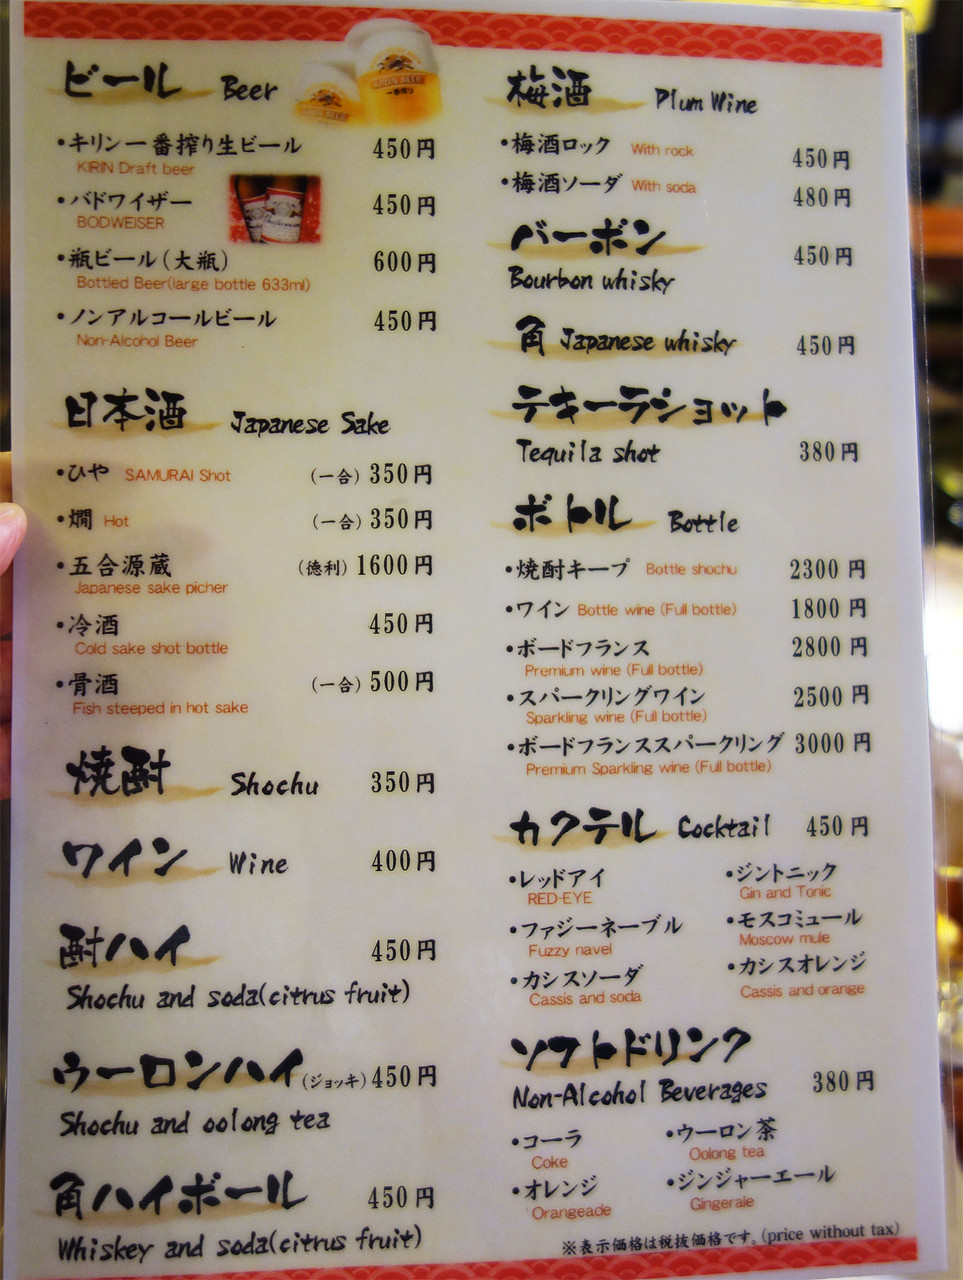 ビール Beer
・キリン一番搾り生ビール 450円
KIRIN Draft beer
・バドワイザー 450円
BODWEISER
・瓶ビール(大瓶) 600円
Bottled Beer(large bottle 633ml)
・ノンアルコールビール 450円
Non-Alcohol Beer
日本酒 Japanese Sake
・ひや SAMURAI Shot (一合) 350円
・燗 Hot (一合) 350円
・五合源蔵 (徳利) 1600円
Japanese sake picher
・冷酒 450円
Cold sake shot bottle
・骨酒 (一合) 500円
Fish steeped in hot sake
焼酎 Shochu 350円
ワイン Wine 400円
酎ハイ 450円
Shochu and soda(citrus fruit)
ウーロンハイ(ジョッキ) 450円
Shochu and oolong tea
角ハイボール 450円
Whiskey and soda(citrus fruit)
梅酒 Plum Wine
・梅酒ロック With rock 450円
・梅酒ソーダ With soda 480円
バーボン 450円
Bourbon whisky
角 Japanese whisky 450円
テキーラショット
Tequila shot 380円
ボトル Bottle
・焼酎キープ Bottle shochu 2300円
・ワイン Bottle wine (Full bottle) 1800円
・ボードフランス 2800円
Premium wine (Full bottle)
・スパークリングワイン 2500円
Sparkling wine (Full bottle)
・ボードフランススパークリング 3000円
Premium Sparkling wine (Full bottle)
カクテル Cocktail 450円
・レッドアイ ・ジントニック
RED-EYE Gin and Tonic
・ファジーネーブル ・モスコミュール
Fuzzy navel Moscow mule
・カシスソーダ ・カシスオレンジ
Cassis and soda Cassis and orange
ソフトドリンク
Non-Alcohol Beverages 380円
・コーラ ・ウーロン茶
Coke Oolong tea
・オレンジ ・ジンジャーエール
Orangeade Gingerale
※表示価格は税抜価格です。(price without tax)